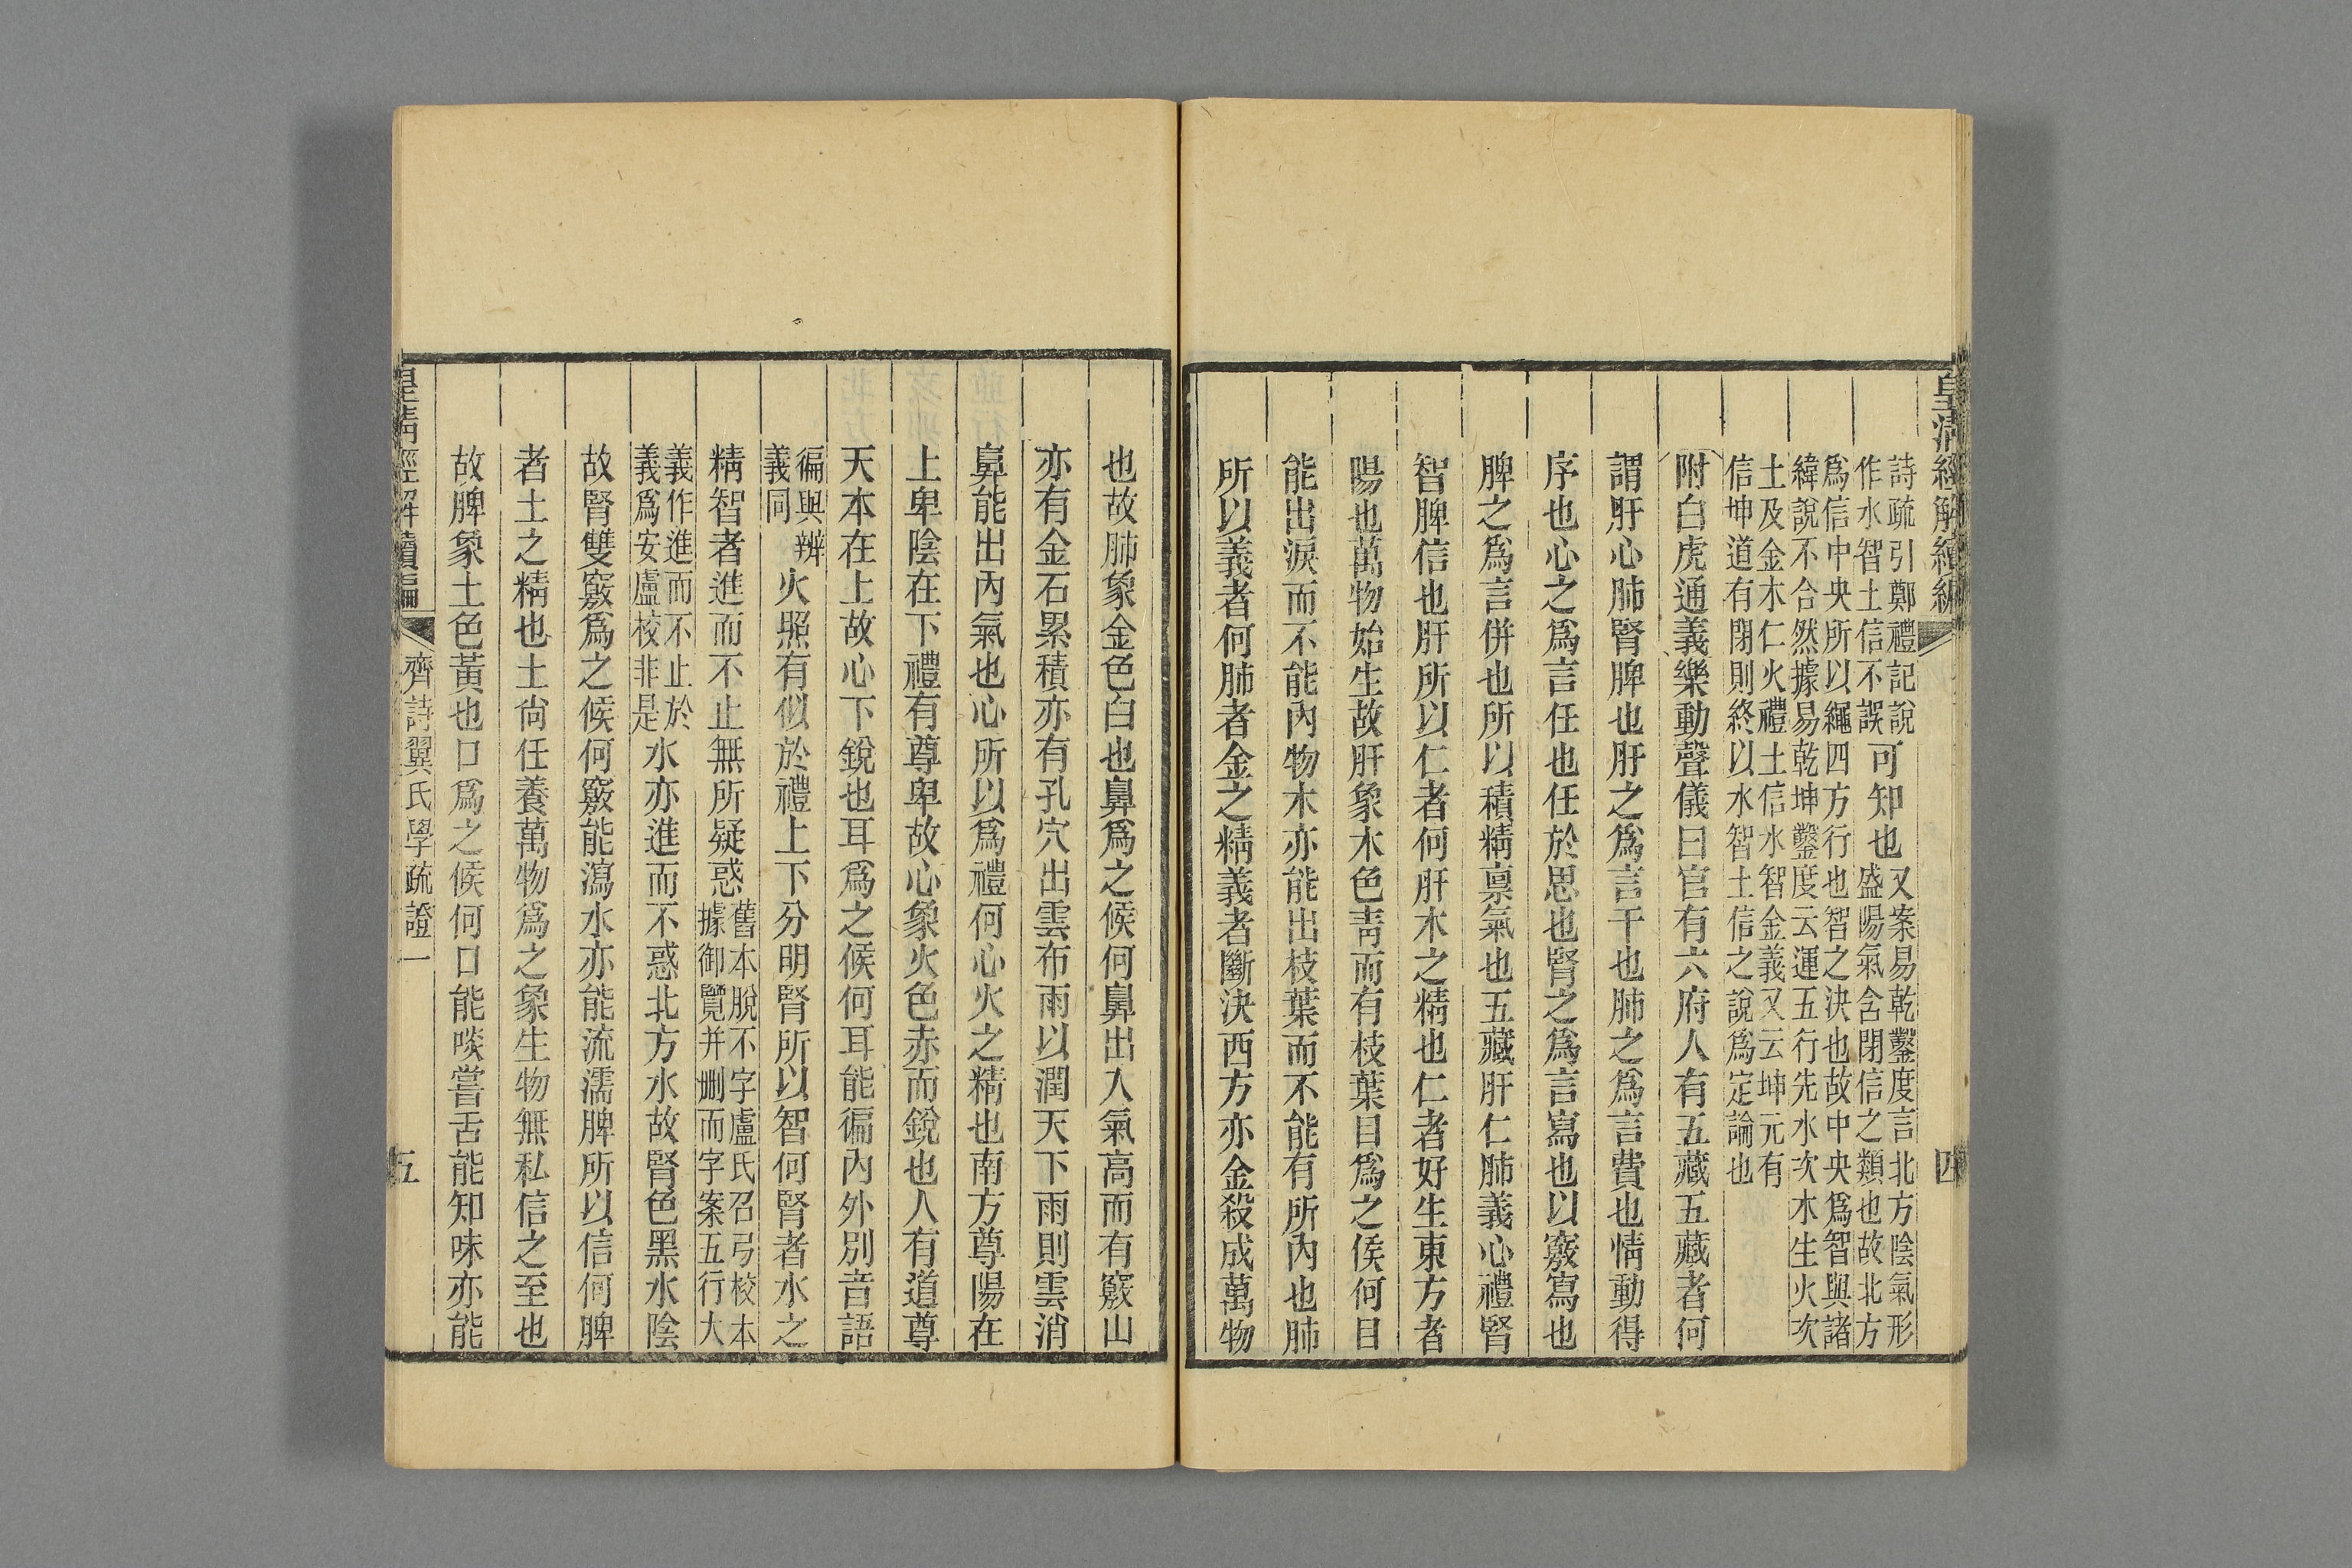 皇清經解續編
四
詩疏引鄭禮記說
作水智土信不誤
可知也
又案易乾鑿度言北方陰氣形
盛陽氣含閉信之類也故北方
爲信中央所以繩四方行也智之決也故中央爲智與諸
緯說不合然據易乾坤鑿度云運五行先水次木生火次
土及金木仁火禮土信水智金義又云坤元有
信坤道有閉則終以水智土信之說爲定論也
附白虎通義樂動聲儀曰官有六府人有五藏五藏者何
謂肝心肺腎脾也肝之爲言干也肺之爲言費也情動得
序也心之爲言任也任於思也腎之爲言寫也以竅寫也
脾之爲言併也所以積精禀氣也五藏肝仁肺義心禮腎
智脾信也肝所以仁者何肝木之精也仁者好生東方者
陽也萬物始生故肝象木色青而有枝葉目爲之侯何目
能出淚而不能內物木亦能出枝葉而不能有所內也肺
所以義者何肺者金之精義者斷決西方亦金殺成萬物
也故肺象金色白也鼻爲之候何鼻出入氣高而有竅山
亦有金石累積亦有孔穴出雲布雨以潤天下雨則雲消
鼻能出內氣也心所以爲禮何心火之精也南方尊陽在
上卑陰在下禮有尊卑故心象火色赤而銳也人有道尊
天本在上故心下銳也耳爲之候何耳能徧內外別音語
徧與辨
義同
火照有似於禮上下分明腎所以智何腎者水之
精智者進而不止無所疑惑
舊本脫不字盧氏召弓校本
據御覽并刪而字案五行大
義作進而不止於
義爲安盧校非是
水亦進而不惑北方水故腎色黑水陰
故腎雙竅爲之候何竅能瀉水亦能流濡脾所以信何脾
者土之精也土尙任養萬物爲之象生物無私信之至也
故脾象土色黃也口爲之候何口能啖嘗舌能知味亦能
皇清經解續編
齊詩翼氏學疏證一
五